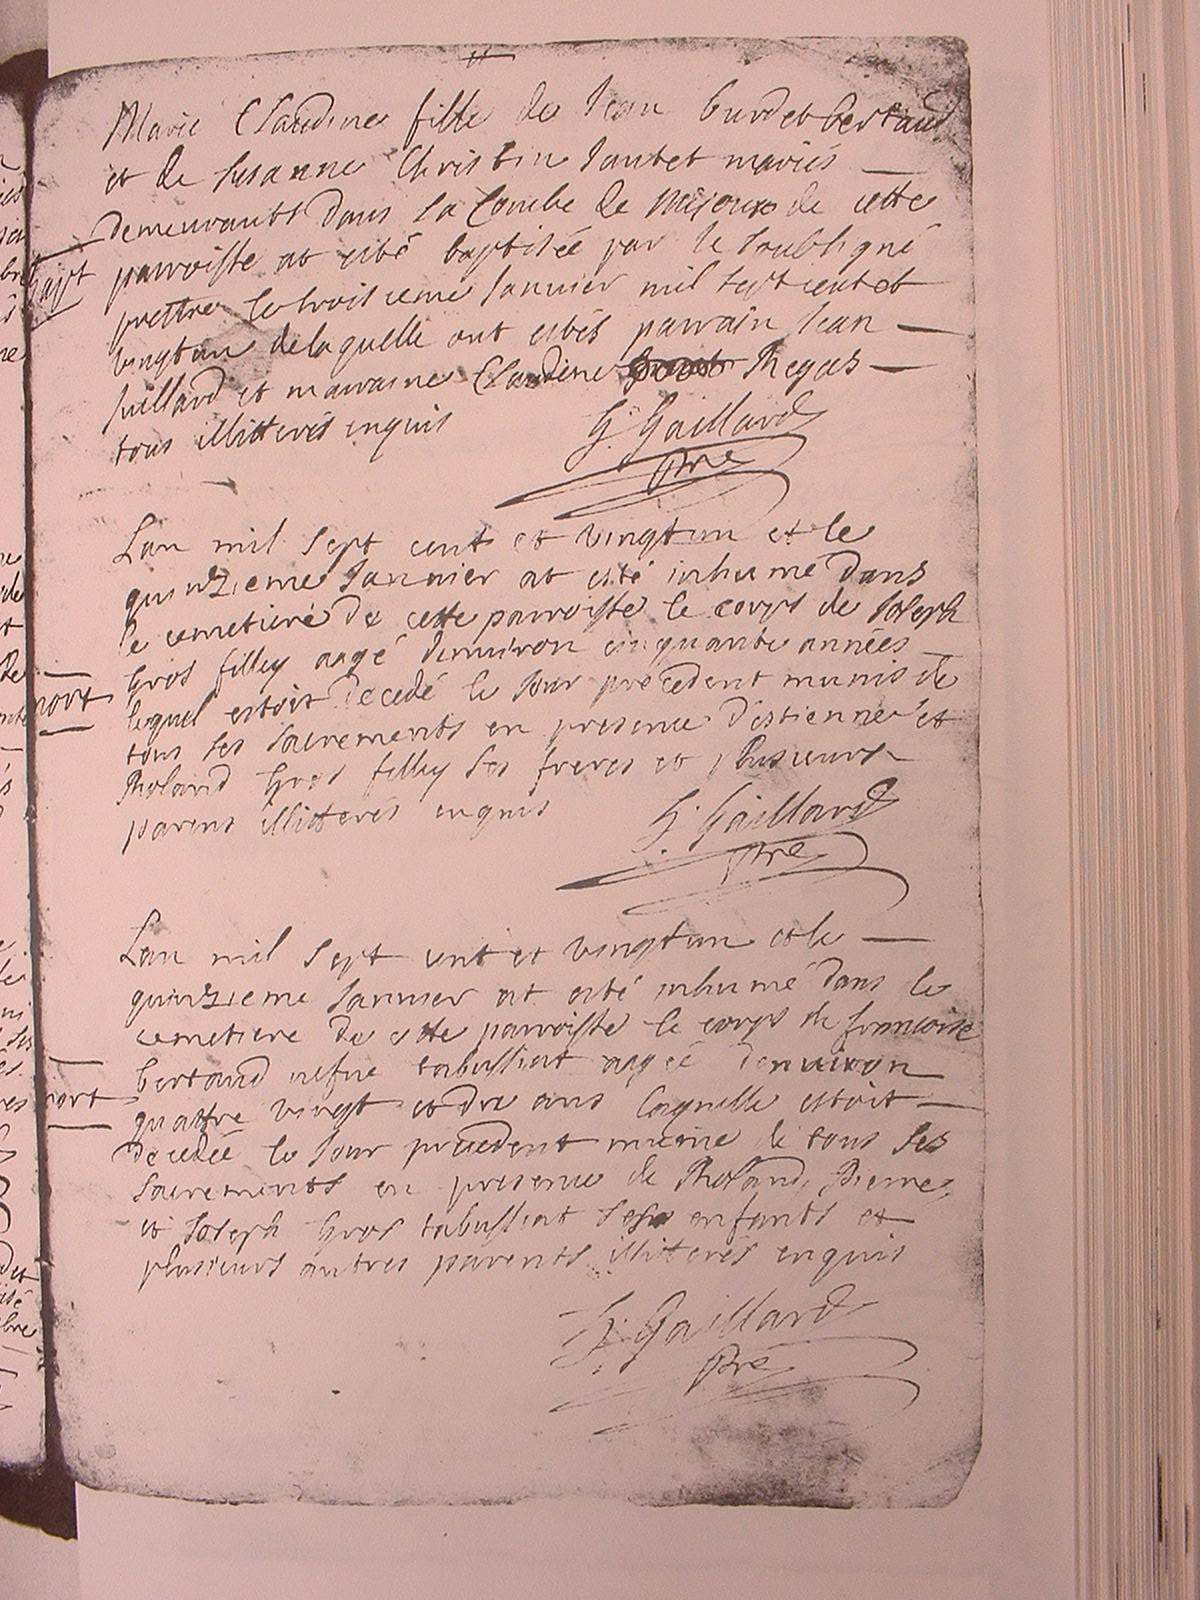 Marie Claudine fille de Jean burdet bertaud
et de susanne Christin Jantet mariés
demeurants dans la Combe de mijoux de cette
bapt
parroisse at esté baptisée par le soubsigné
prettre le troisieme Janvier mil sept cent et
vingtun de laquelle ont estés parrain Jean
Juillard et marraine Claudine Regas
tous illitterés enquis
G. Gaillard
Pre
Lan mil sept cent et vingtun et le
quinzieme Janvier at esté inhumé dans
le cemetiere de cette parroisse le corps de Joseph
Gros filley aagé d'environ cinquante années
mort
lequel estoit decedé le Jour precedent munis de
tous ses sacrements en presence d'estienne et
Roland Gros filley ses freres et plusieurs
parens illitterés enquis
G. Gaillard
Pre
Lan mil sept cent et vingtun et le
quinzieme Janvier at esté inhumé dans le
cemetiere de cette parroisse le corps de francoise
bertaud vefue tabussiat aagée d'environ
mort
quattre vingt et dix ans laquelle estoit
decedée le Jour precedent munie de tous ses
sacrements en presence de Roland, Pierre,
et Joseph Gros tabussiat ses enfants et
plusieurs autres parents illitterés enquis
G. Gaillard
Pre